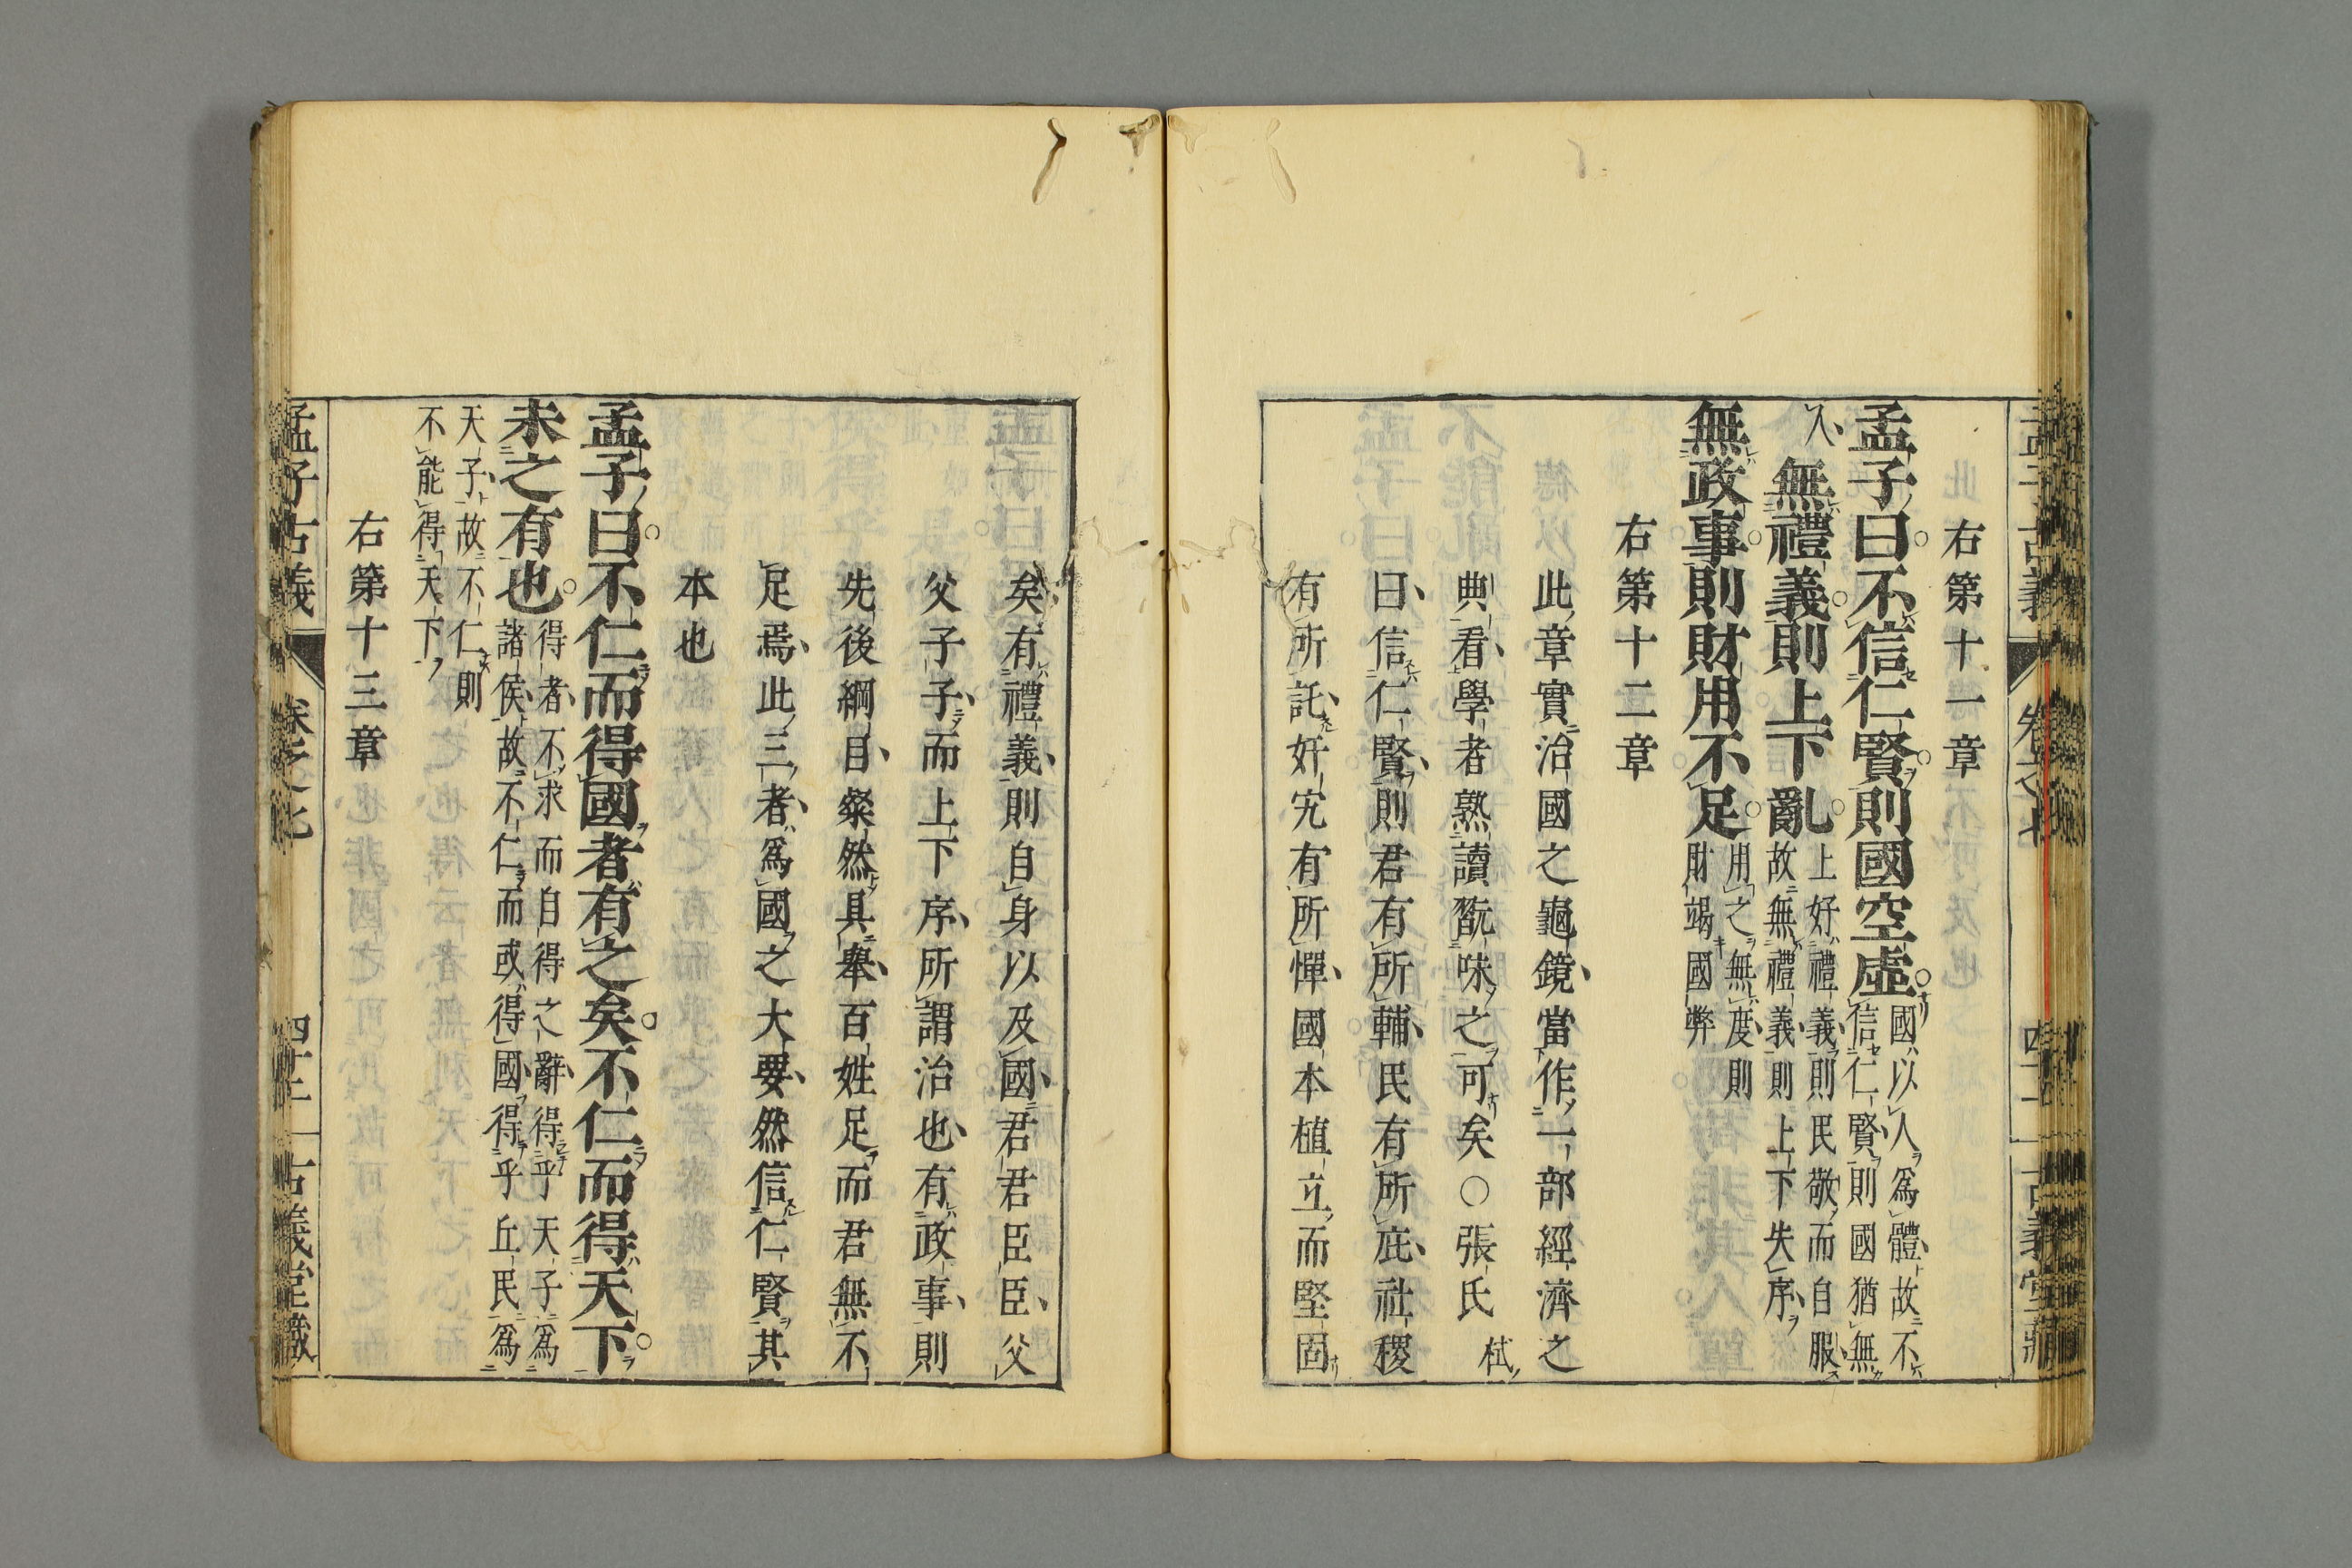 右第十一章
孟子曰不信仁賢則國空虛國以人爲體故不
信仁賢則國猶無
人
無禮義則上下亂上好禮義則民敬而自服
故無禮義則上下失序
無政事則財用不足用之無度則
財竭國弊
右第十二章
此章實治國之龜鏡當作一部經濟之
典看學者熟讀翫味之可矣○張氏栻
曰信仁賢則君有所輔民有所庇社稷
有所託奸宄有所憚國本植立而堅固
矣有禮義則自身以及國君君臣臣父
父子子而上下序所謂治也有政事則
先後綱目粲然具舉百姓足而君無不
足焉此三者爲國之大要然信仁賢其
本也
孟子曰不仁而得國者有之矣不仁而得天下
未之有也得者不求而自得之辭得乎天子爲
諸侯故不仁而或得國得乎丘民爲
天子故不仁則
不能得天下
右第十三章
孟子古義 卷之七 四十二 古義堂藏